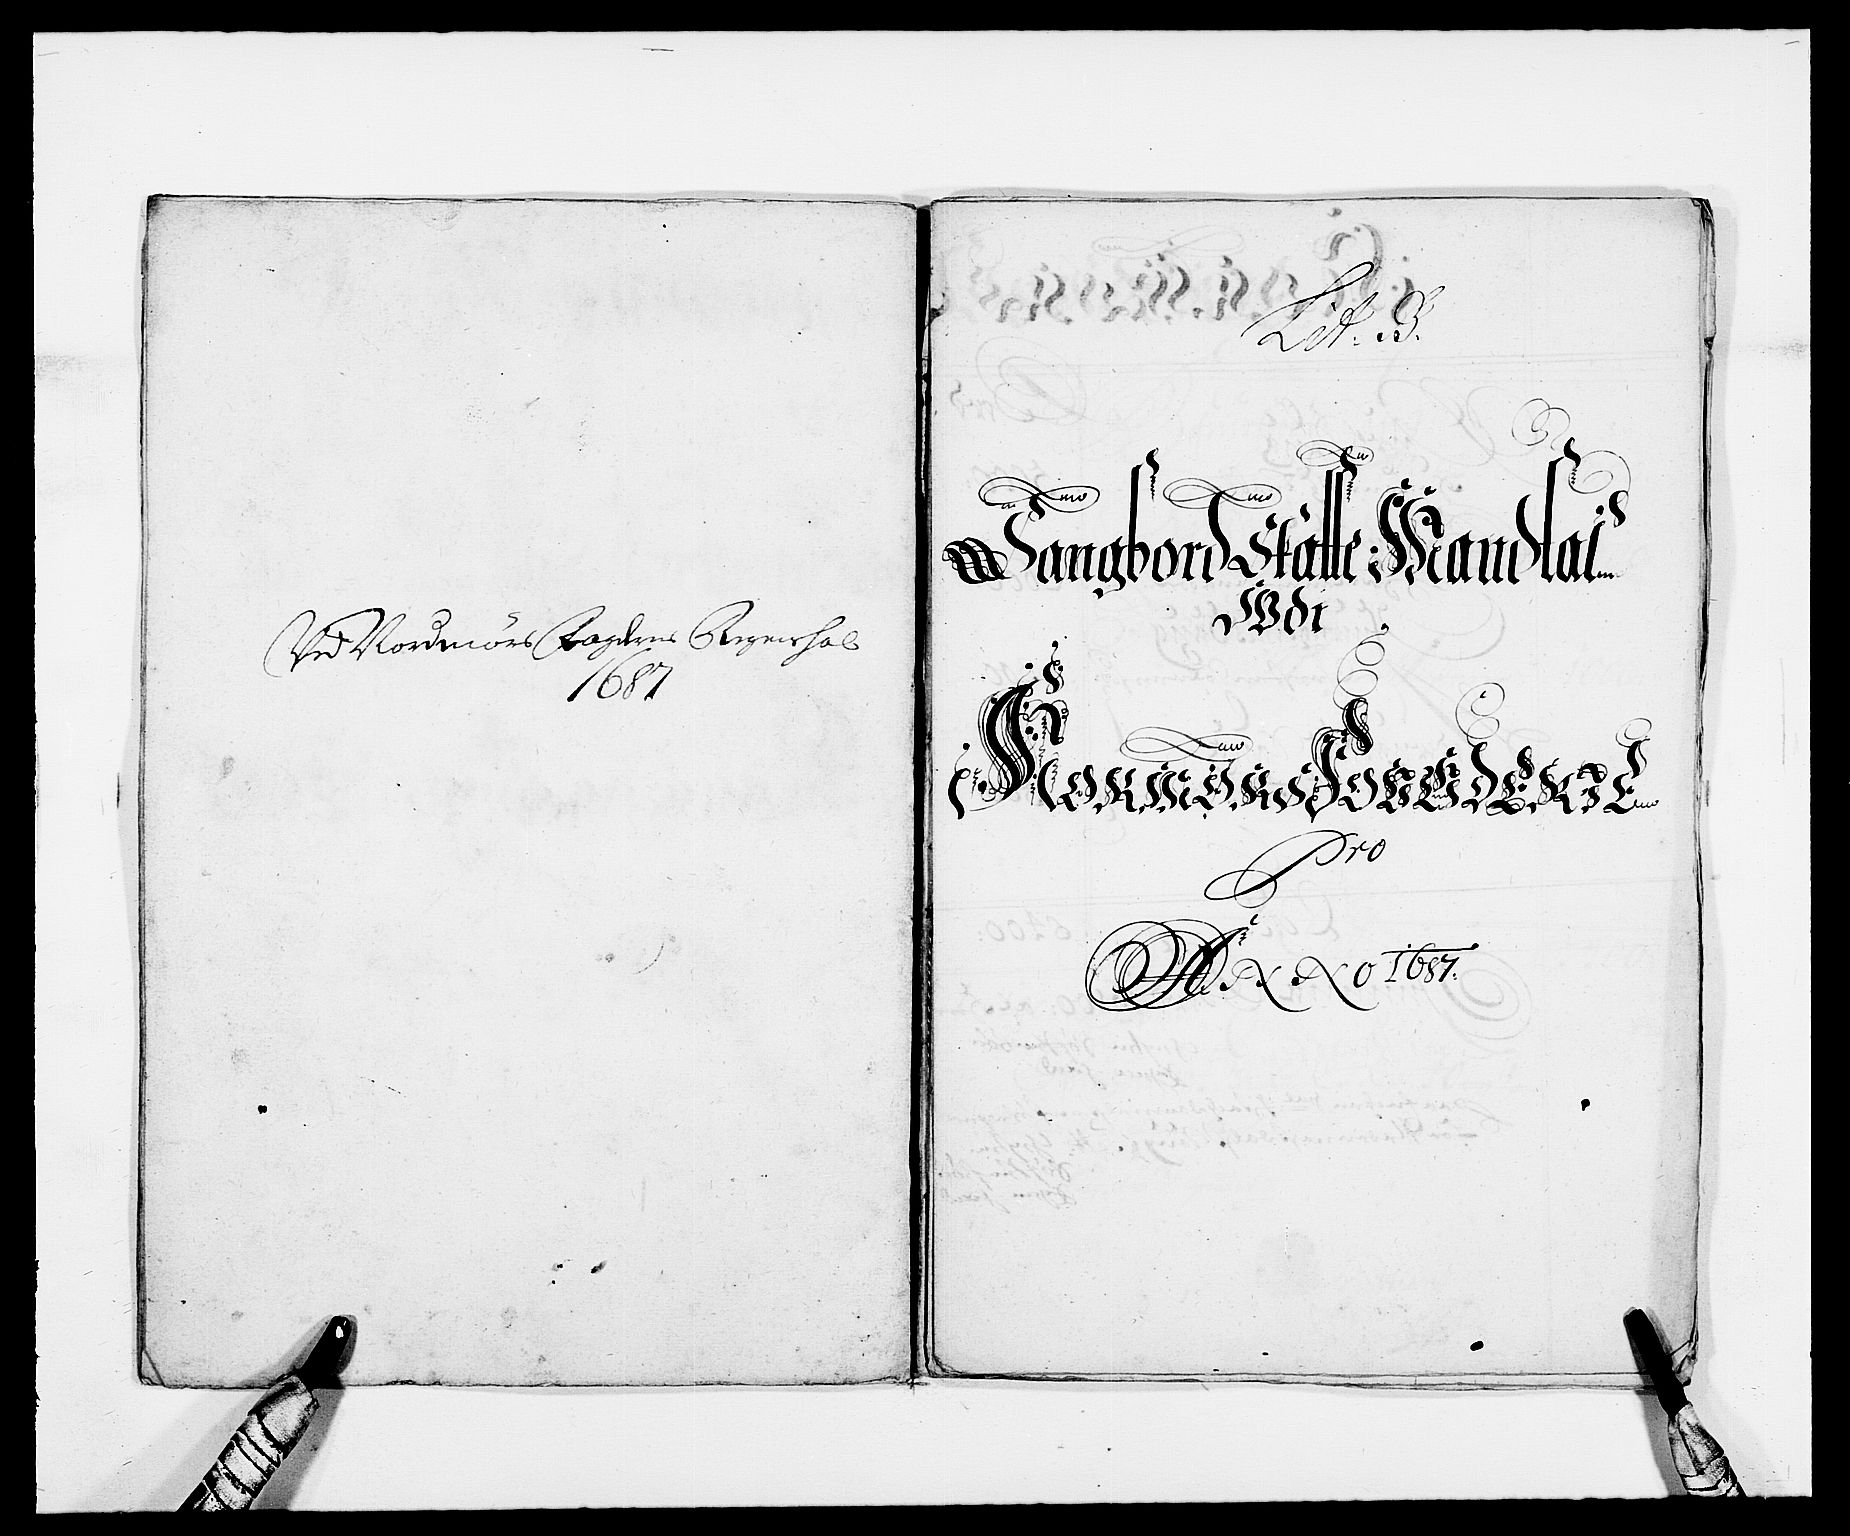 Ved Nordmörs Fogderies Regenschab
1687
Lit: B.
Sangbord Skatte Mandtal
Wdi
NORMØRS FOUGDERIE
Pro
ANNO 1687.